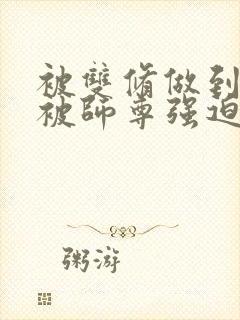 被雙脩做到
被師尊强迫
粥游